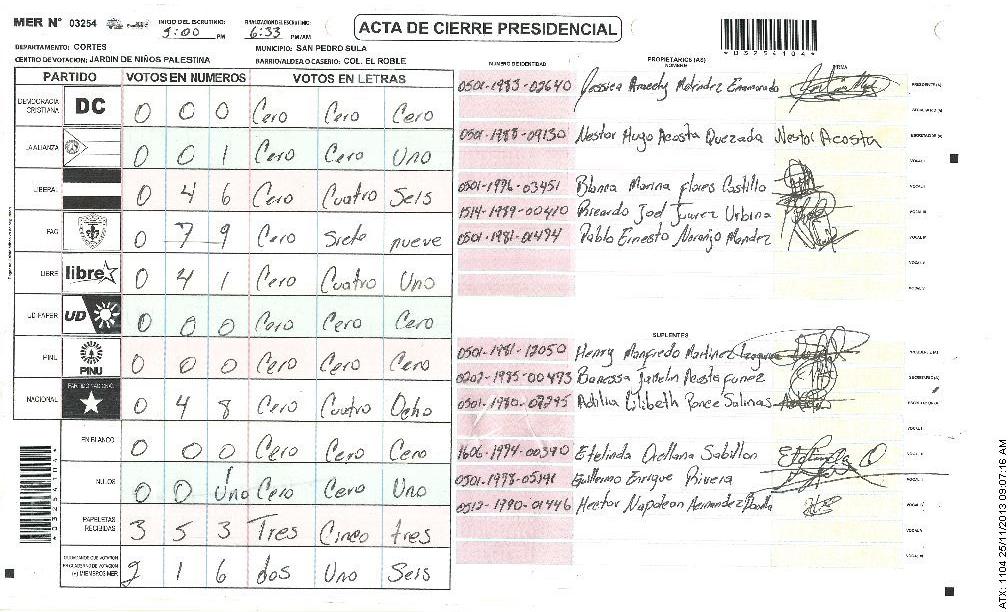 MER N° 03254
INICIO DEL ESCRUTINIO: 5:00 PM
FINALIZACION DEL ESCRUTINIO: 6:33 PM/AM
ACTA DE CIERRE PRESIDENCIAL
DEPARTAMENTO: CORTES
MUNICIPIO: SAN PEDRO SULA
CENTRO DE VOTACION: JARDIN DE NIÑOS PALESTINA
BARRIO/ALDEA O CASERIO: COL. EL ROBLE
PARTIDO VOTOS EN NUMEROS VOTOS EN LETRAS
DEMOCRACIA CRISTIANA DC 0 0 0 Cero Cero Cero
LA ALIANZA 0 0 1 Cero Cero Uno
LIBERAL 0 4 6 Cero Cuatro Seis
PAC 0 7 9 Cero Siete nueve
LIBRE libre 0 4 1 Cero Cuatro Uno
UD FAPER UD 0 0 0 Cero Cero Cero
PINU PINU 0 0 0 Cero Cero Cero
NACIONAL 0 4 8 Cero Cuatro Ocho
EN BLANCO 0 0 0 Cero Cero Cero
NULOS 0 0 Uno Cero Cero Uno
PAPELETAS RECIBIDAS 3 5 3 Tres Cinco tres
2 1 6 dos Uno Seis
NUMERO DE IDENTIDAD
PROPIETARIOS (AS)
NOMBRE
FIRMA
0501-1983-02640 Jessica Melendez Enamorado
0501-1988-09130 Nestor Hugo Acosta Quezada Nestor Acosta
0501-1996-03451 Blanca Marina Flores Castillo
1514-1989-00410 Ricardo Joel Juarez Urbina
Pablo Ernesto Naranjo Mendez
SUPLENTES
0501-1981-12050 Henry Manfredo Martinez
Banessa Acosta Funez
Lilibeth Ponce Salinas
1606-1974-00390 Etelinda Orellana Sabillon
Guillermo Enrique Rivera
0512-1990-01446 Hector Napoleon Hernandez
ATX: 1104 25/11/2013 09:07:16 AM